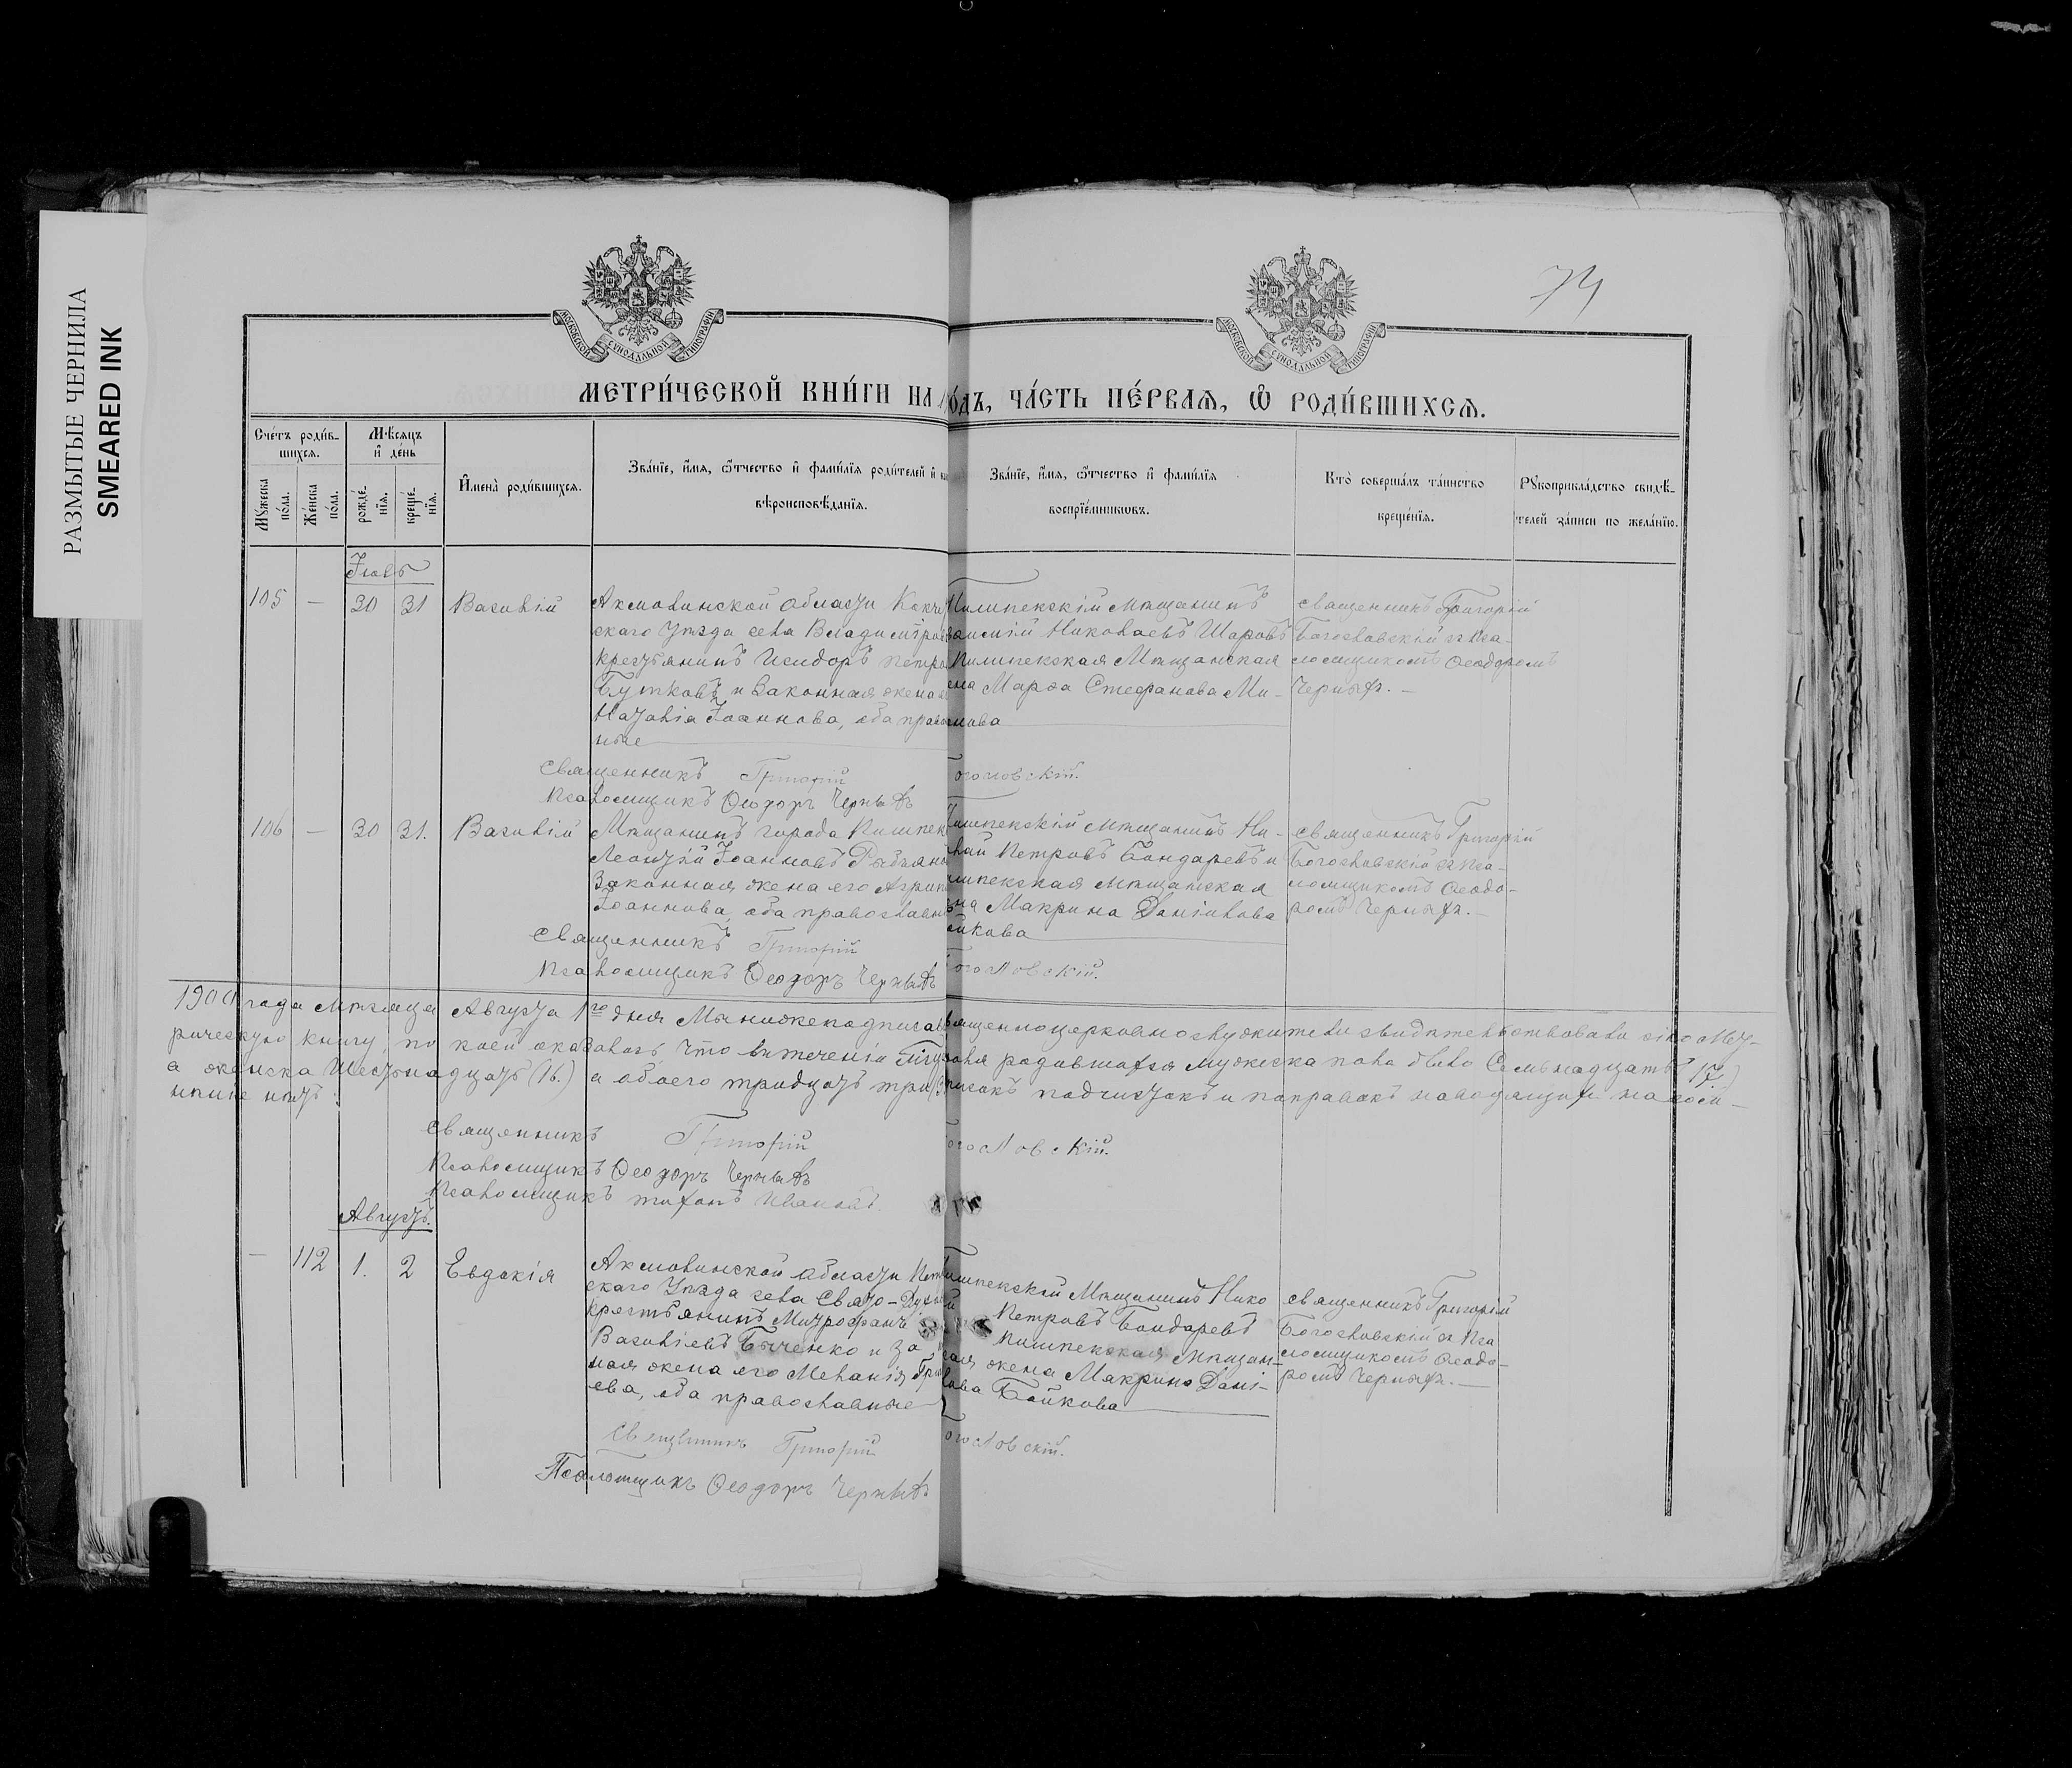 РАЗМЫТЫЕ ЧЕРНИЛА
SMEARED INK
74
МОСКОВСКОЙ СѴНОДАЛЬНОЙ ТИПОГРАФІИ
МОСКОВСКОЙ СѴНОДАЛЬНОЙ ТИПОГРАФІИ
МЕТРИ́ЧЕСКОЙ КНИ́ГИ НА
О́ДЪ, ЧА́СТЬ ПЕ́РВАѦ, Ѡ РОДИ́ВШИХСѦ.
Сче́тъ роди́в-
шихсѧ.
Мѣ́сѧцъ
и де́нь
Мꙋжеска по́ла.
Же́нска по́ла.
рожде́-
нїѧ.
креще́-
нїѧ.
Имена̀ роди́вшихсѧ.
Зва́нїе, и́мѧ, ѻ́тчество и фами́лїѧ роди́телей и
вѣроисповѣ́данїѧ.
Зва́нїе, и́мѧ, ѻ́тчество и фами́лїѧ
воспрїе́мникѡвъ.
Кто̀ соверша́лъ та́инство
креще́нїѧ.
Рꙋкоприкла́дство свидѣ́-
телей за́писи по жела́нїю.
Іюль
105 — 30 31 Василій
Акмолинской области Кокче
скаго Уѣзда села Владимиров
крестьянинъ Исидоръ Петро
Бутковъ и законная жена
Наталія Іоаннова, оба право
ные
Пишпекскій мѣщанинъ
Николаевъ Шаровъ
Пишпекская Мѣщанская
ена Марѳа Стефанова Ми-
нова
Священникъ Григорій
Богословскій съ Пса-
ломщикомъ Ѳеодоромъ
Черныхъ. —
Священникъ Григорій
огословскій.
Псаломщикъ Ѳеодоръ Черныхъ
106 — 30 31. Василій
Мѣщанинъ города Пишпек
Леонтій Іоанновъ
Законная жена его Агрип
Іоаннова, оба православн
Пишпекскій мѣщанинъ Ни-
лай Петровъ Бондаревъ и
ишпекская мѣщанская
на Макрина Даніилова
йкова
Священникъ Григорій
Богословскій съ Пса-
ломщикомъ Ѳеодо-
ромъ Черныхъ. —
Священникъ Григорій
огословскій.
Псаломщикъ Ѳеодоръ Черныхъ
1900 года мѣсяца Августа 1го дня Мы нижеподписав
ященноцерковнослужители свидѣтельствовали сію Мет-
рическую книгу, по коей оказалось, что въ теченіи
родившихся мужеска пола было Семьнадцать 17)
а женска Шестьнадцать (16.) а обоего тридцать три
писокъ подчистокъ и поправокъ
нѣтъ
Священникъ Григорій
огословскій.
Псаломщикъ Ѳеодоръ Черныхъ
Псаломщикъ Тихонъ Ивановъ
Августъ.
— 112 1. 2 Евдокія
Акмолинской области Пет
скаго Уѣзда села Свято-Духов
крестьянинъ Митрофанъ
Василіевъ Бѣченко и за
ная жена его Меланія Гри
ева, оба православные
Пишпекскій Мѣщанинъ Нико
й Петровъ Бондаревъ
Пишпекская мѣщан-
ская жена Макрина Дані-
лова Бойкова
Священникъ Григорій
Богословскій съ Пса
ломщикомъ Ѳеодо-
ромъ Черныхъ. —
Священникъ Григорій
огословскій.
Псаломщикъ Ѳеодоръ Черныхъ